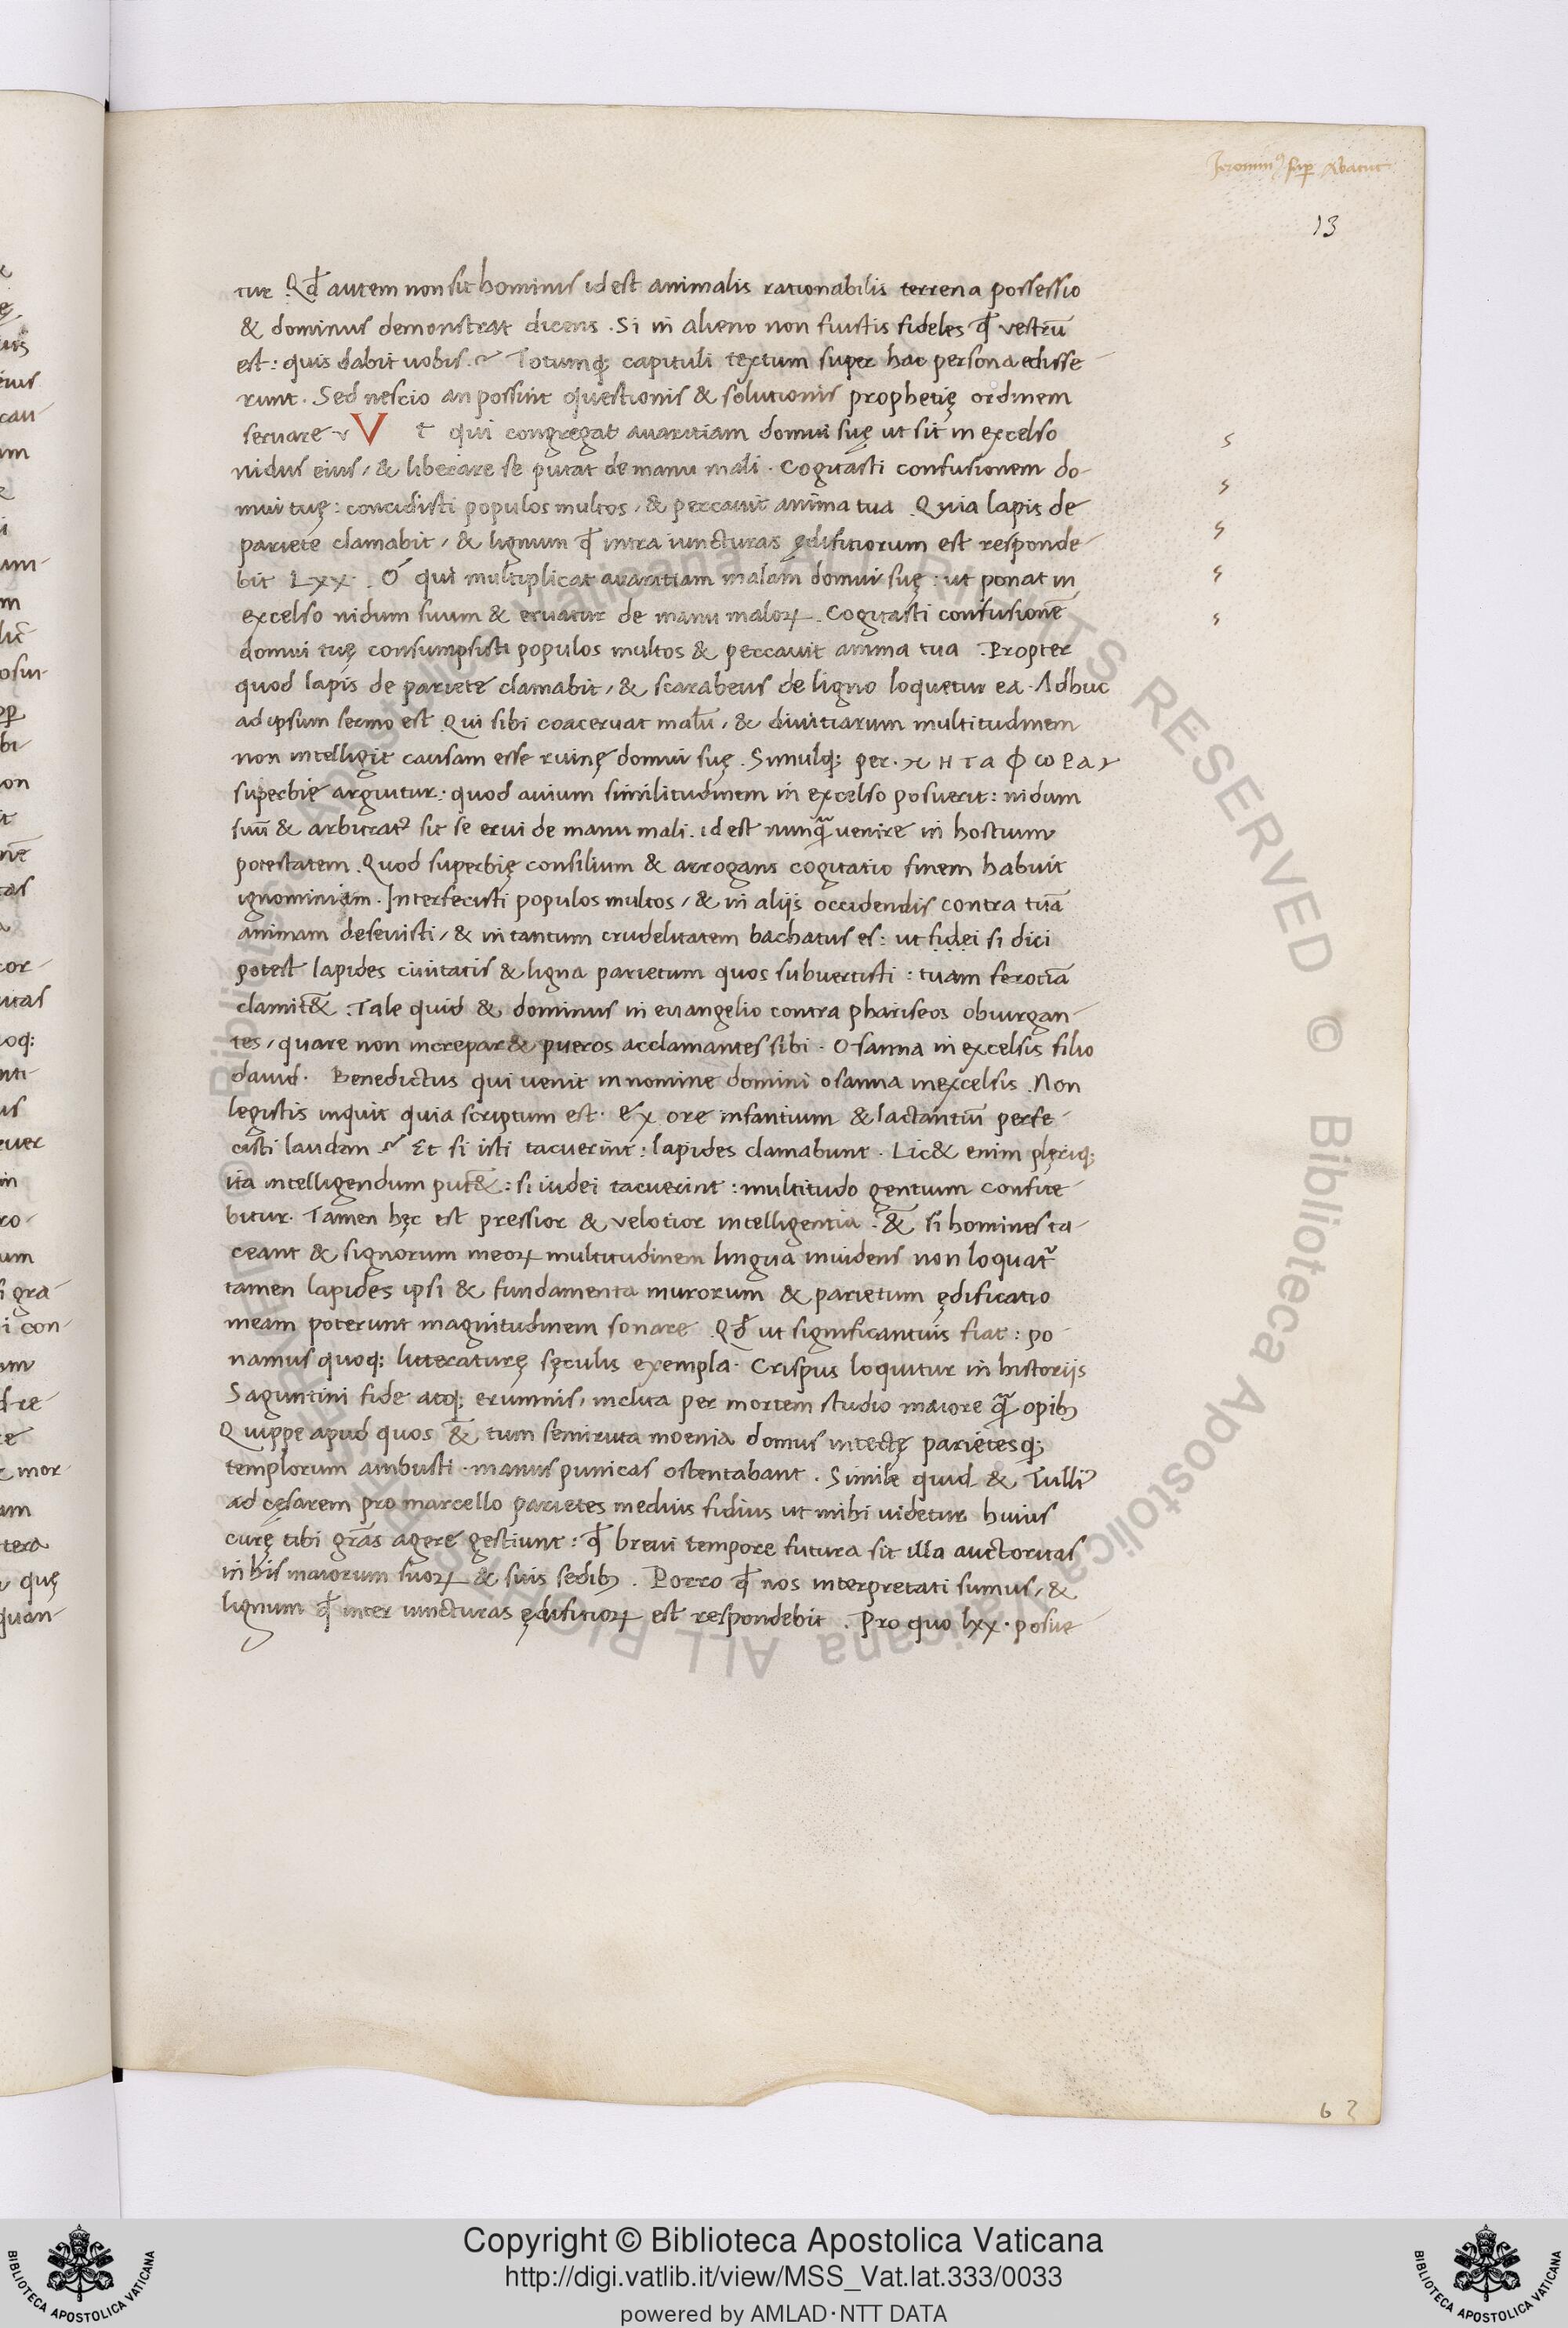 Jeronim⁹ sup Abacuc
13
tur. Qd̄ autem non sit hominis id est animalis rationabilis terrena possessio
& dominus demonstrat dicens. Si in alieno non fuistis fideles qđ vestrū
est: quis dabit uobis. Totumq; capituli textum super hac persona edisse
runt. Sed nescio an possint questionis & solutionis prophetię ordinem
servare V t qui congregat avaritiam domui suę ut sit in excelso
nidus eius, & liberare se putat de manu mali. Cogitasti confusionem do-
mui tuę: concidisti populos multos, & peccavit anima tua. Quia lapis de
pariete clamabit, & lignum qđ intra iuncturas ędificiorum est responde-
bit Lxx. O qui multiplicat avaritiam malam domui suę: ut ponat in
excelso nidum suum & eruatur de manu maloꝝ. Cogitasti confusionē
domui tuę consumpsisti populos multos & peccavit anima tua. Propter
quod lapis de pariete clamabit, & scarabeus de ligno loquetur ea. Adhuc
ad ipsum sermo est Qui sibi coaceruat malū, & divitiarum multitudinem
non intelligit causam esse ruinę domui suę. Simulq; per. ϰ H T a ϕ ω P a ϒ
superbię arguitur: quod avium similitudinem in excelso posuerit: nidum
suū & arbitrat᷑ sit se erui de manu mali. id est nunq̃ venire in hostium
potestatem. Quod superbię consilium & arrogans cogitatio finem habuit
ignominiam. Interfecisti populos multos, & in aliis occidendis contra tuā
animam desevisti, & in tantum crudelitatem bachatus es: ut fidei si dici
potest lapides civitatis & ligna parietum quos subvertisti: tuam ferociā
clamit&̄. Tale quid & dominus in evangelio contra phariseos obiurgan-
tes, quare non increpar& pueros acclamantes sibi. Osanna in excelsis filio
david. Benedictus qui venit in nomine domini osanna in excelsis. Non
legistis inquit quia scriptum est. Ex ore infantium & lactantiū perfe-
cisti laudem Et si isti tacuerint: lapides clamabunt. Lic& enim plęriq;
ita intelligendum put&̄: si iudei tacuerint: multitudo gentium confite-
bitur. Tamen hęc est pressior & velotior intelligentia. &̄ si homines ta-
ceant & signorum meoꝝ multitudinem lingua invidens non loquat᷑
tamen lapides ipsi & fundamenta murorum & parietum ędificatio
meam poterunt magnitudinem sonare. Qđ ut significantius fiat: po
namus quoq; litteraturę sęculis exempla. Crispus loquitur in historiis
Saguntini fide atq; erumnis, inclita per mortem studio maiore q̃ opib;
Quippe apud quos &̄ tum semiruta moenia domus intectę parietesq;
templorum ambusti. manus punicas ostentabant. Simile quid & Tulli⁹
ad cęsarem pro marcello parietes medius fidius ut mihi videtur huius
curę tibi grās agere gestiunt: qđ brevi tempore futura sit illa auctoritas
in his maiorum suoꝝ & suis sedib;. Porro qđ nos interpretati sumus, &
lignum qđ inter iuncturas ędificioꝝ est respondebit. Pro quo lxx. posue-
Copyright © Biblioteca Apostolica Vaticana
http://digi.vatlib.it/view/MSS_Vat.lat.333/0033
powered by AMLAD·NTT DATA